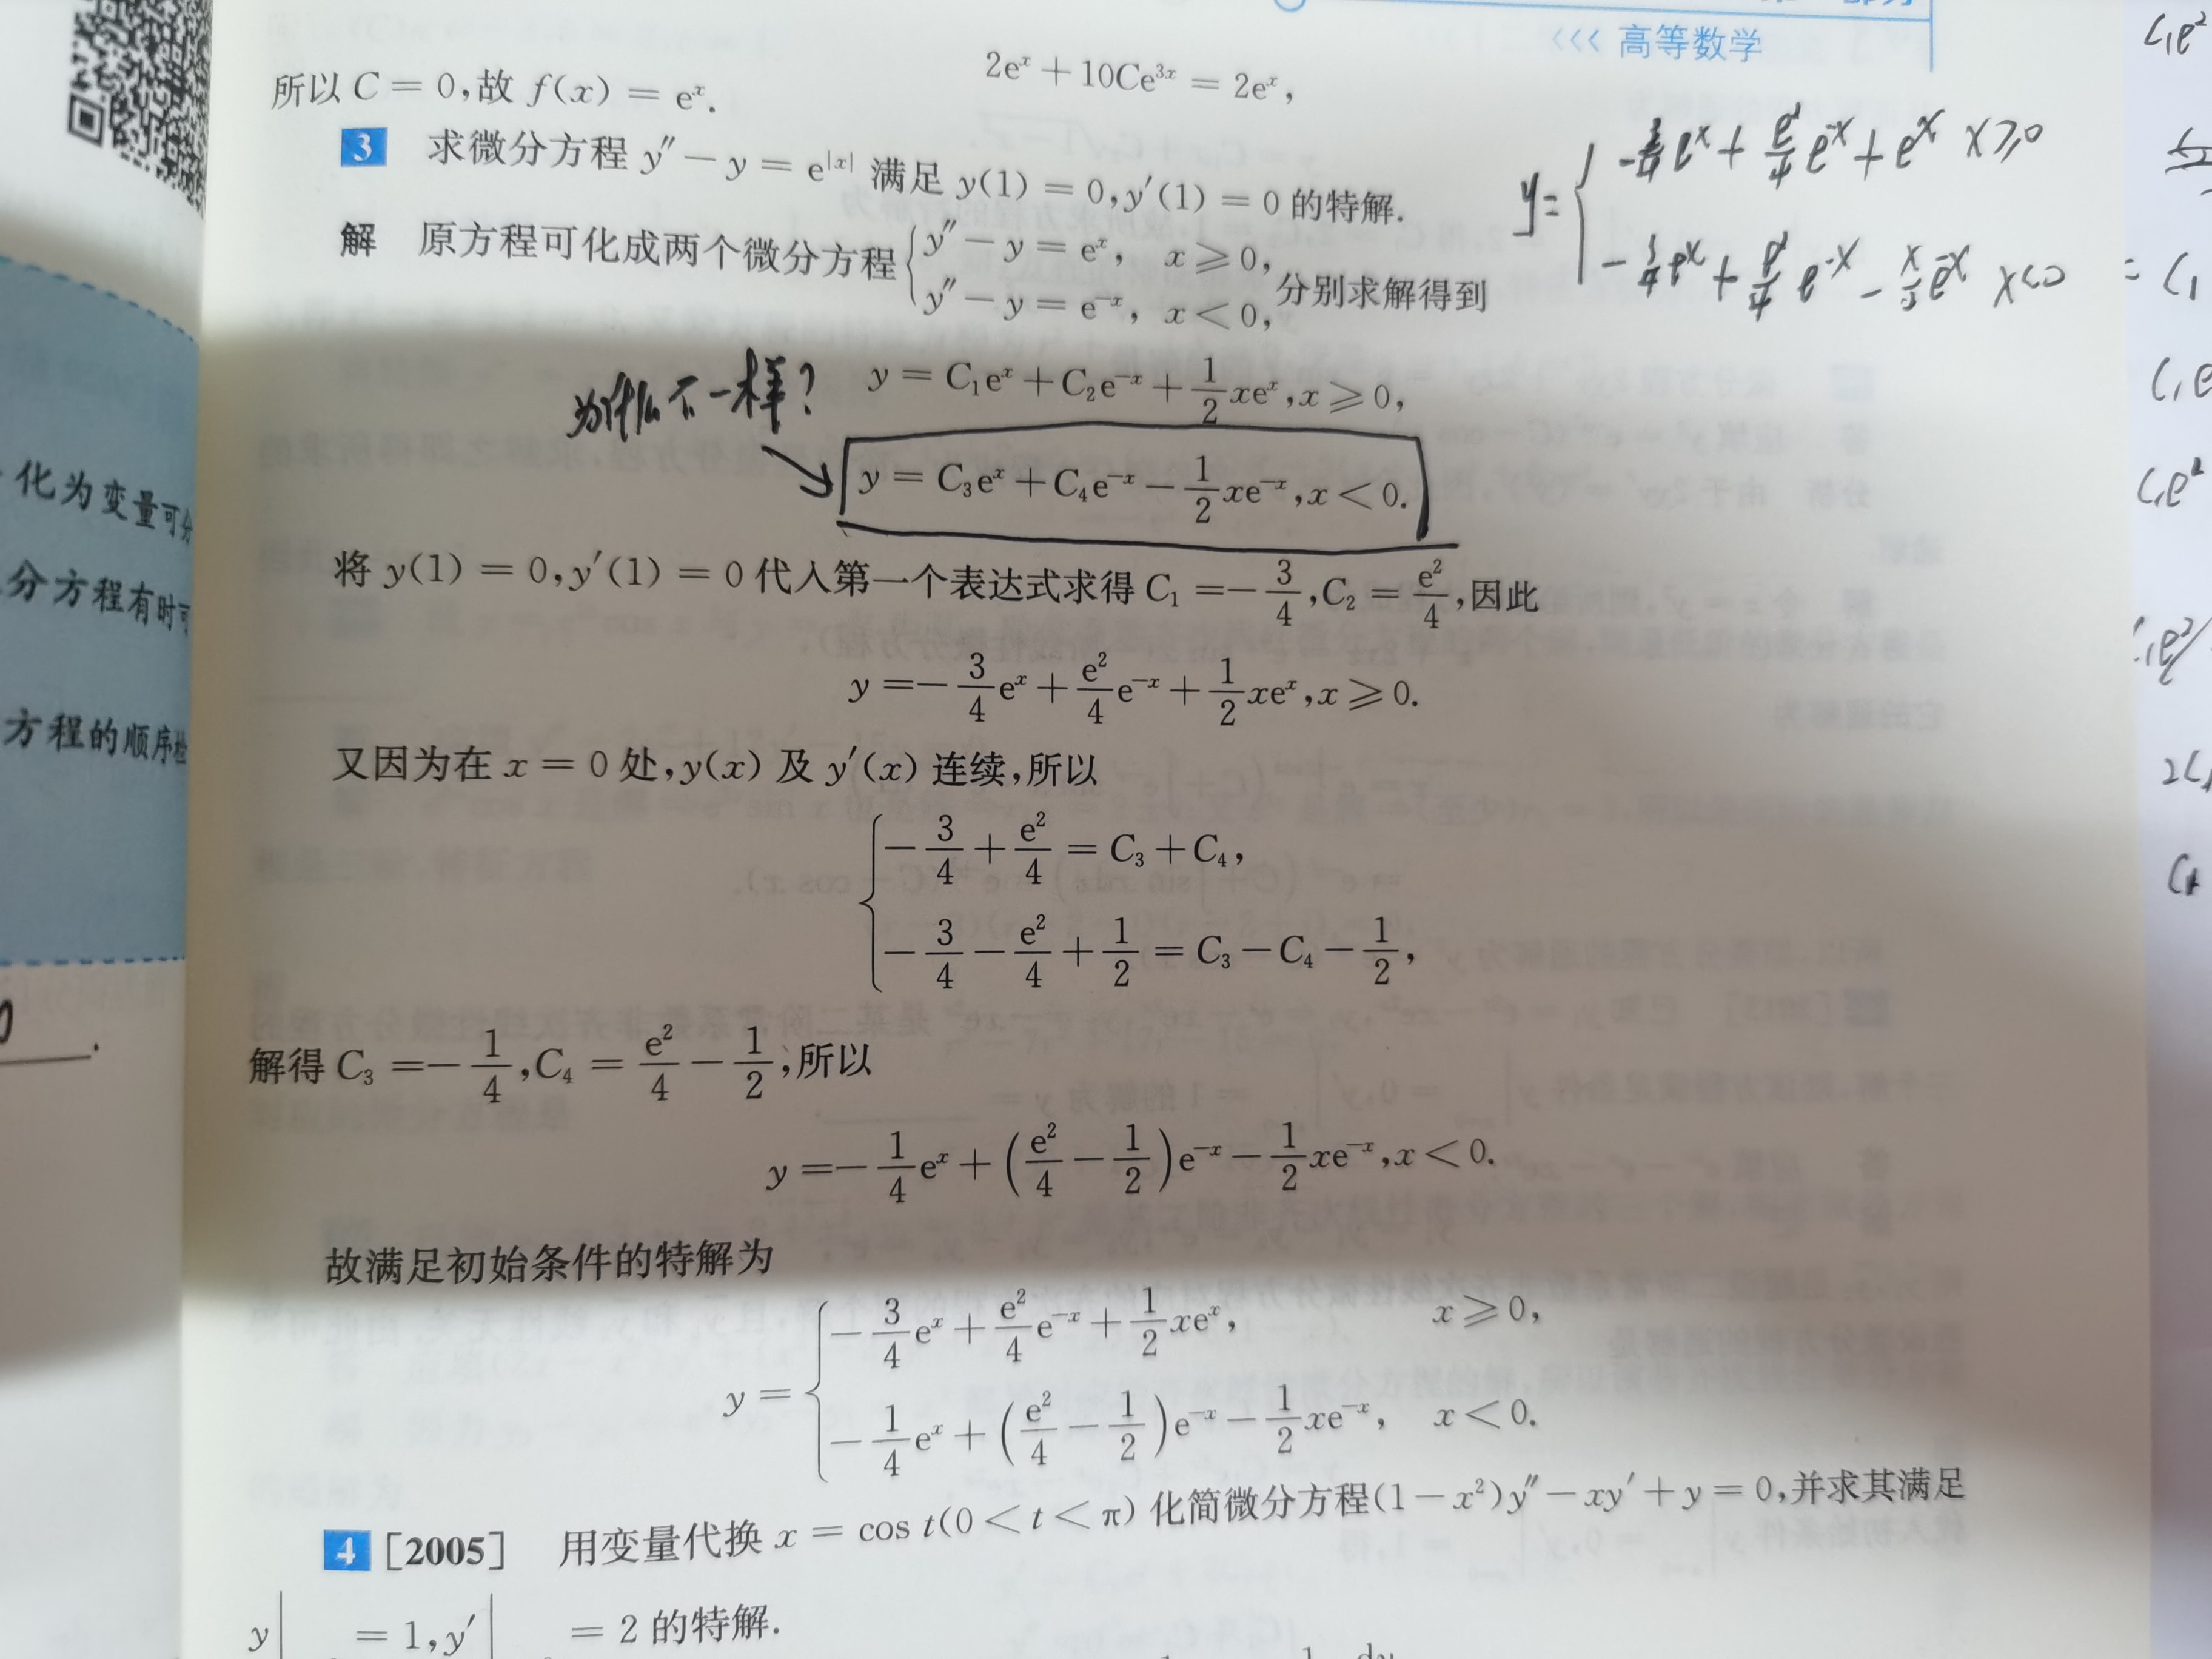 <<< 高等数学
2eˣ + 10Ce³ˣ = 2eˣ,
所以 C = 0,故 f(x) = eˣ.
3 求微分方程 y″ − y = e^{|x|} 满足 y(1) = 0, y′(1) = 0 的特解.
解 原方程可化成两个微分方程 { y″ − y = eˣ, x ⩾ 0,
y″ − y = e⁻ˣ, x < 0, 分别求解得到
y = C₁eˣ + C₂e⁻ˣ + 1/2 xeˣ, x ⩾ 0,
为什么不一样?
y = C₃eˣ + C₄e⁻ˣ − 1/2 xe⁻ˣ, x < 0.
将 y(1) = 0, y′(1) = 0 代入第一个表达式求得 C₁ = −3/4, C₂ = e²/4, 因此
y = −3/4 eˣ + e²/4 e⁻ˣ + 1/2 xeˣ, x ⩾ 0.
又因为在 x = 0 处, y(x) 及 y′(x) 连续, 所以
{ −3/4 + e²/4 = C₃ + C₄,
−3/4 − e²/4 + 1/2 = C₃ − C₄ − 1/2,
解得 C₃ = −1/4, C₄ = e²/4 − 1/2, 所以
y = −1/4 eˣ + (e²/4 − 1/2)e⁻ˣ − 1/2 xe⁻ˣ, x < 0.
故满足初始条件的特解为
y = { −3/4 eˣ + e²/4 e⁻ˣ + 1/2 xeˣ, x ⩾ 0,
−1/4 eˣ + (e²/4 − 1/2)e⁻ˣ − 1/2 xe⁻ˣ, x < 0.
4 [2005] 用变量代换 x = cos t(0 < t < π) 化简微分方程(1 − x²)y″ − xy′ + y = 0,并求其满足
y| = 1, y′| = 2 的特解.
化为变量可分
分方程有时可
方程的顺序